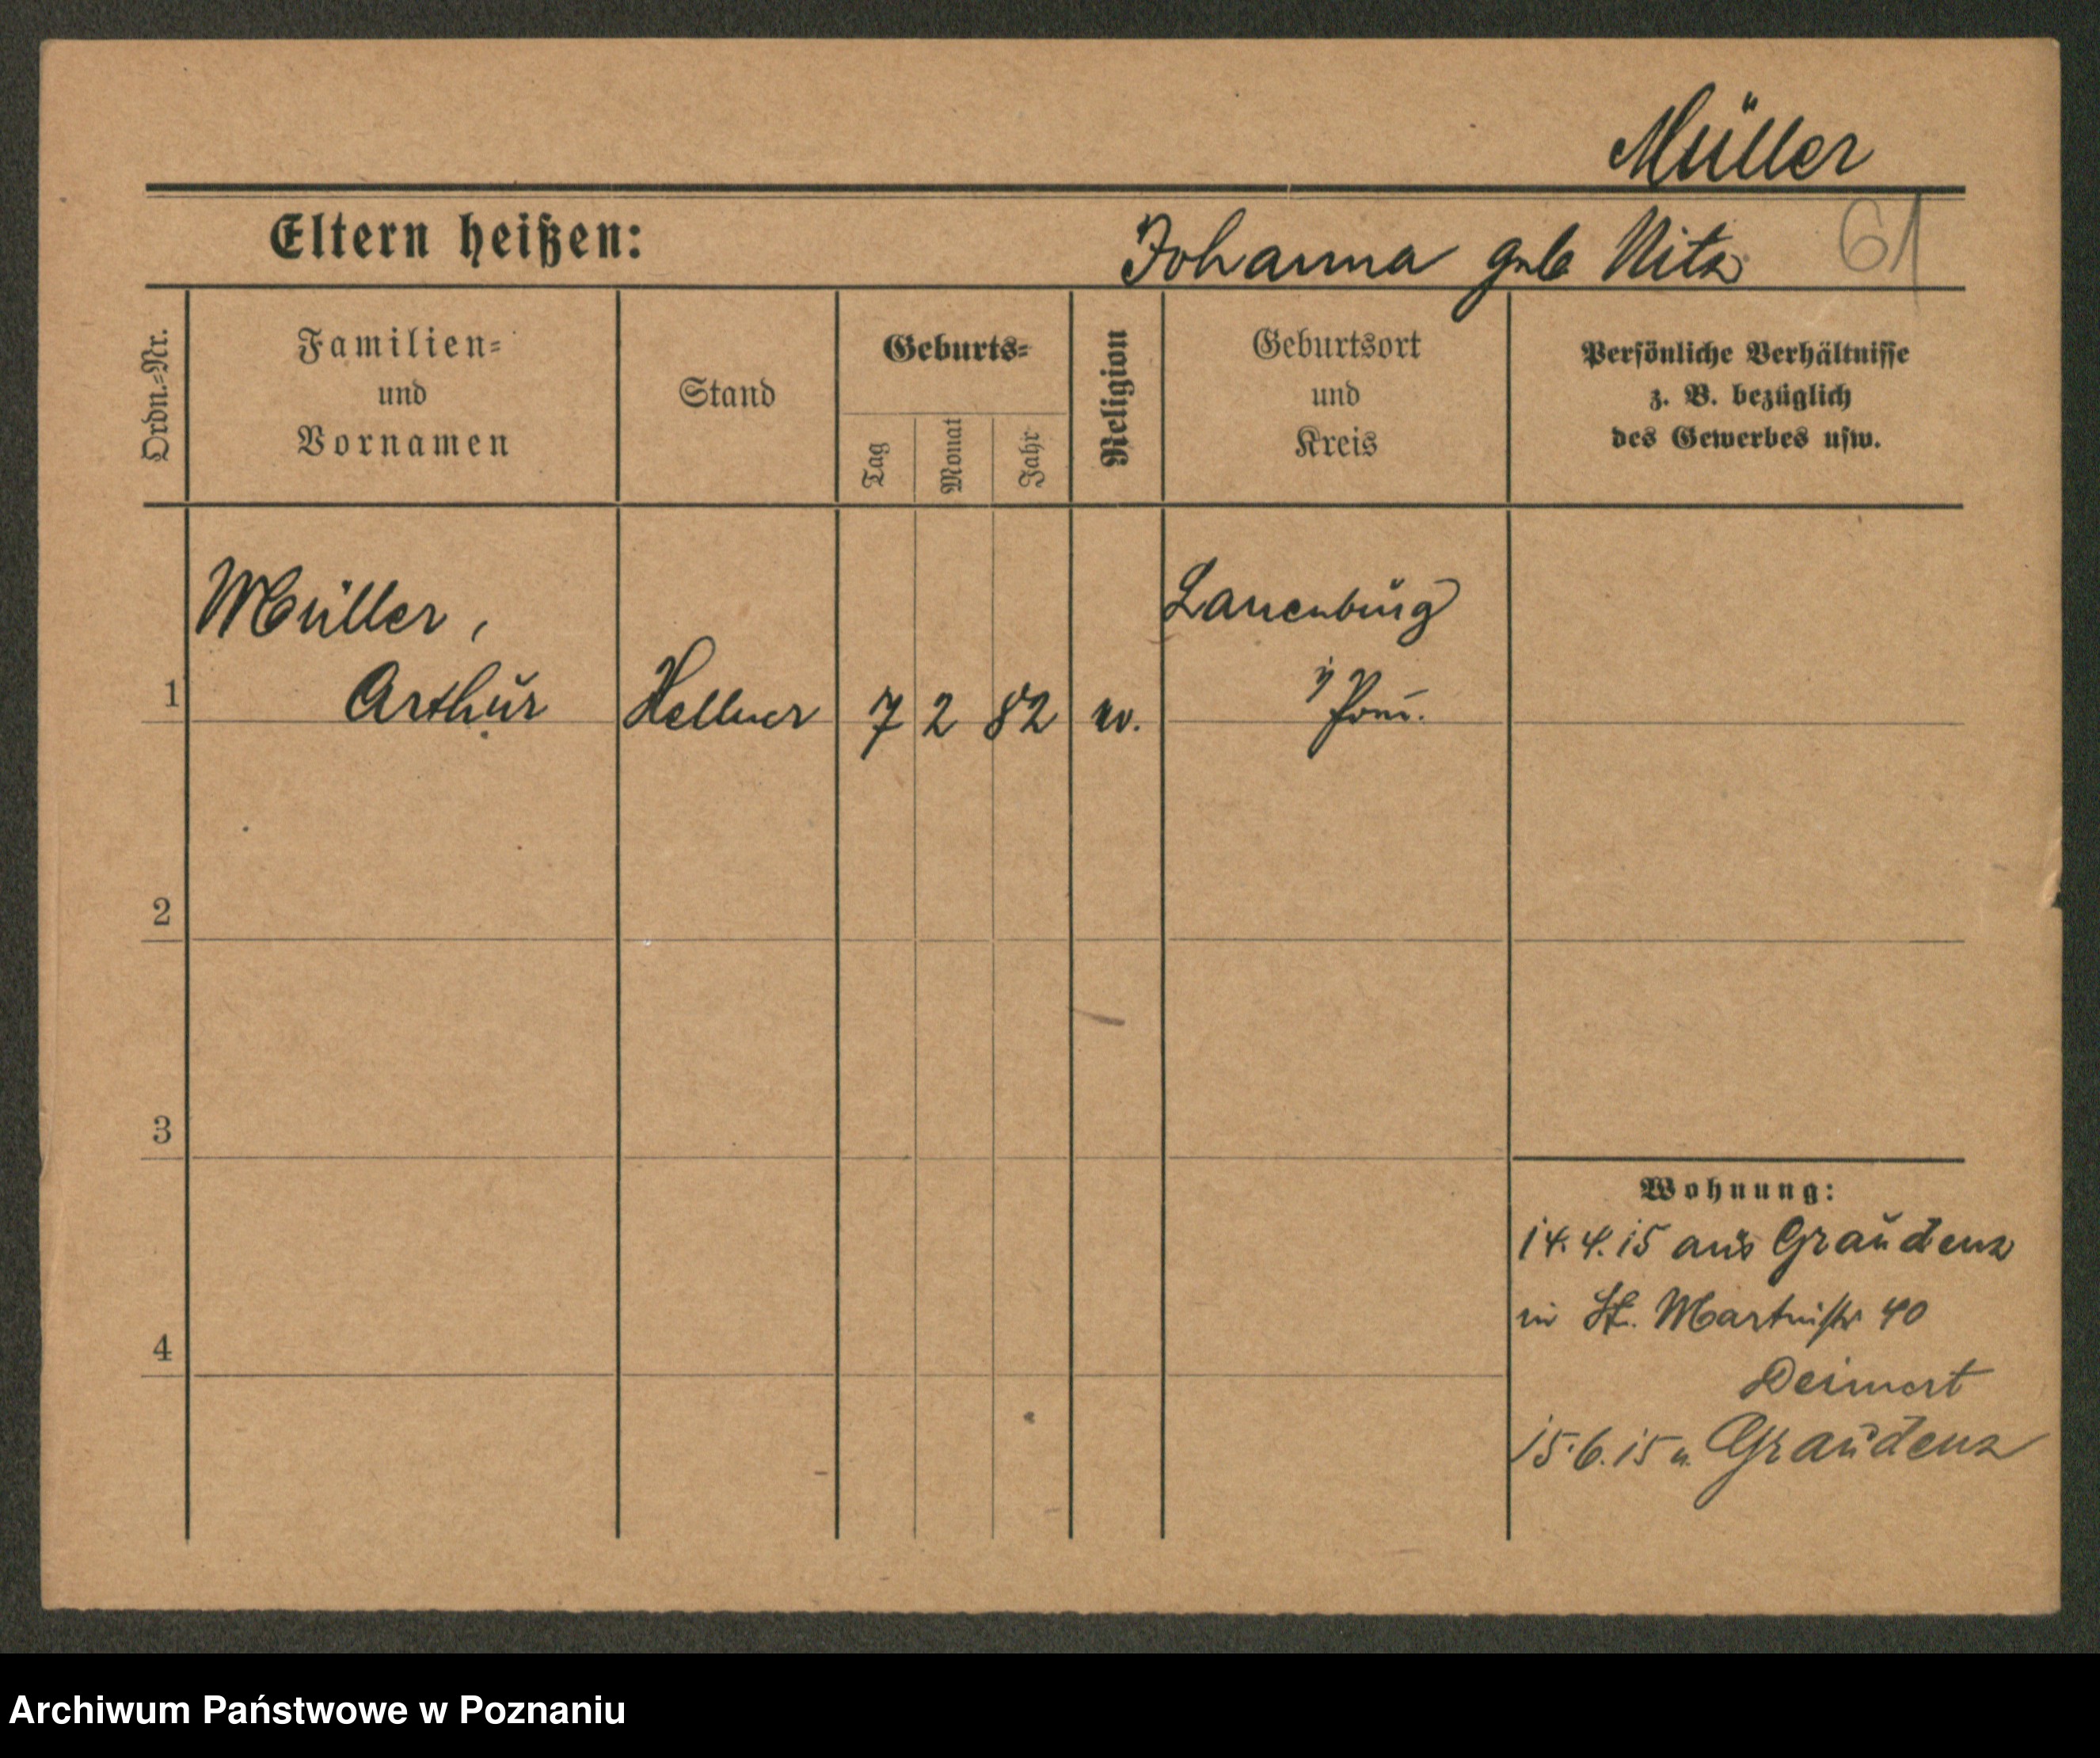 Müller
Eltern heißen:
Johanna geb Nitz
61
Ordn.=Nr.
Familien=
und
Vornamen
Stand
Geburts=
Tag
Monat
Jahr
Religion
Geburtsort
und
Kreis
Persönliche Verhältnisse
z. B. bezüglich
des Gewerbes usw.
Müller,
Lauenburg
1 Arthur Kellner 7 2 82 ev. i/Pom.
2
3
4
Wohnung:
14.4.15 aus Graudenz
in St. Martinstr 40
15.6.15 n. Graudenz
Archiwum Państwowe w Poznaniu